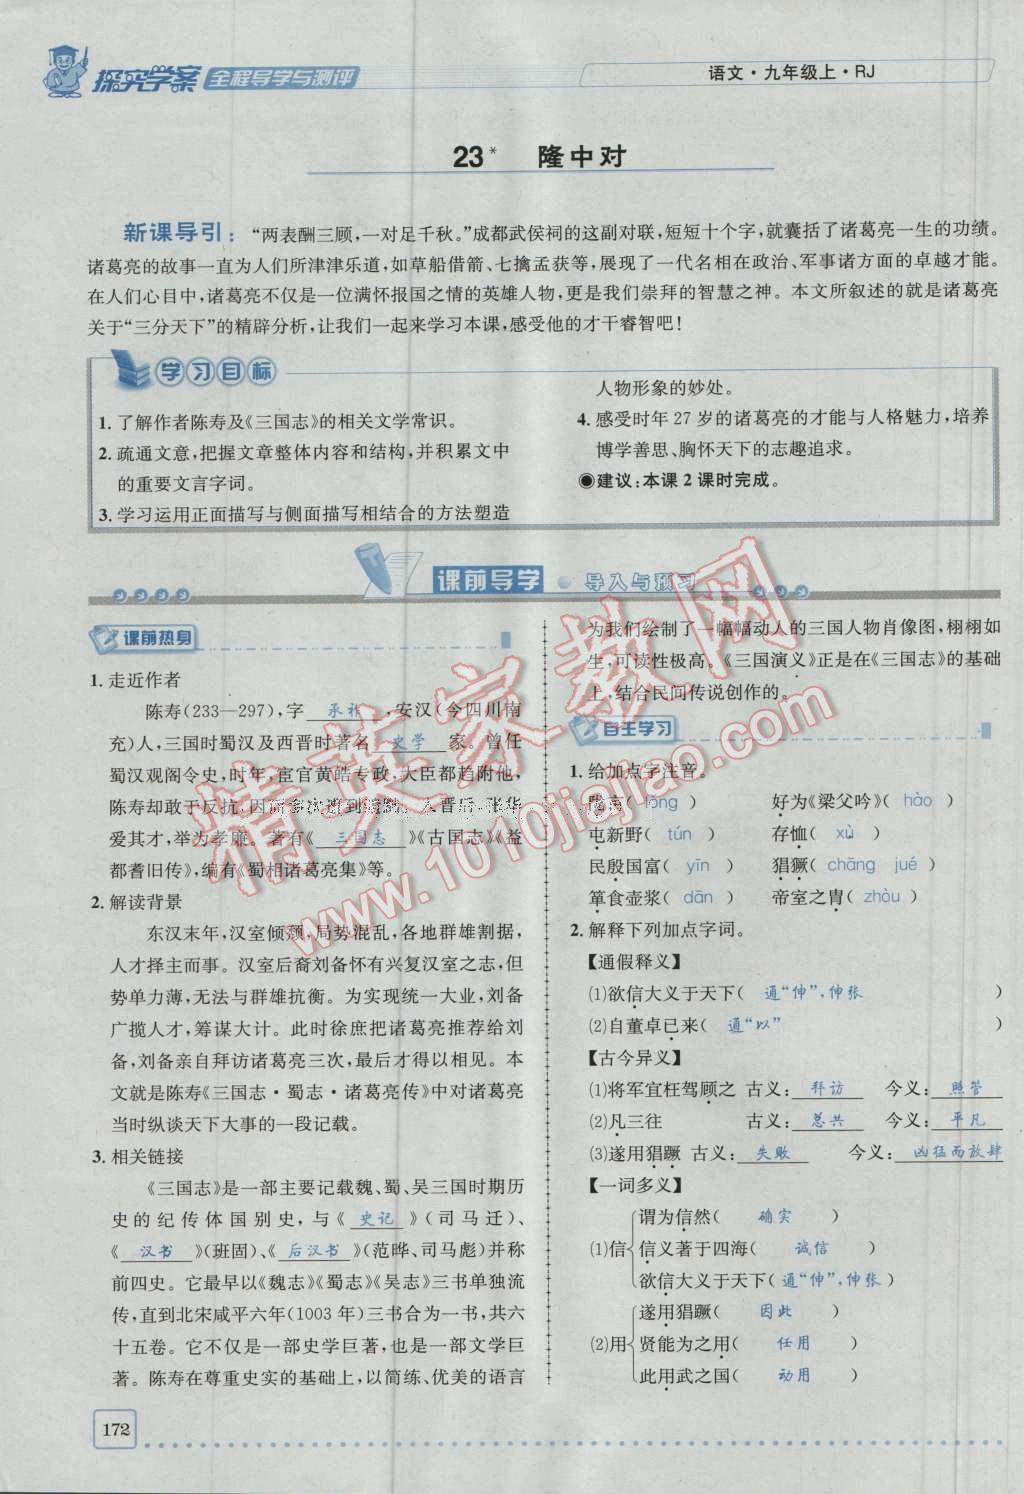 探究学案 全程导学与测评
语文·九年级上·RJ
23* 隆中对
新课导引：“两表酬三顾，一对足千秋。”成都武侯祠的这副对联，短短十个字，就囊括了诸葛亮一生的功绩。
诸葛亮的故事一直为人们所津津乐道，如草船借箭、七擒孟获等，展现了一代名相在政治、军事诸方面的卓越才能。
在人们心目中，诸葛亮不仅是一位满怀报国之情的英雄人物，更是我们崇拜的智慧之神。本文所叙述的就是诸葛亮
关于“三分天下”的精辟分析，让我们一起来学习本课，感受他的才干睿智吧！
学习目标
1. 了解作者陈寿及《三国志》的相关文学常识。
2. 疏通文意，把握文章整体内容和结构，并积累文中
的重要文言字词。
3. 学习运用正面描写与侧面描写相结合的方法塑造
人物形象的妙处。
4. 感受时年 27 岁的诸葛亮的才能与人格魅力，培养
博学善思、胸怀天下的志趣追求。
◉建议：本课 2 课时完成。
课前导学 导入与预习
课前热身
1. 走近作者
陈寿（233—297），字 承祚 ，安汉（今四川南
充）人，三国时蜀汉及西晋时著名 史学 家。曾任
蜀汉观阁令史，时年，宦官黄皓专政，大臣都趋附他，
陈寿却敢于反抗，因而多次遭到贬黜。入晋后，张华
爱其才，举为孝廉。著有《 三国志 》《古国志》《益
都耆旧传》，编有《蜀相诸葛亮集》等。
2. 解读背景
东汉末年，汉室倾颓，局势混乱，各地群雄割据，
人才择主而事。汉室后裔刘备怀有兴复汉室之志，但
势单力薄，无法与群雄抗衡。为实现统一大业，刘备
广揽人才，筹谋大计。此时徐庶把诸葛亮推荐给刘
备，刘备亲自拜访诸葛亮三次，最后才得以相见。本
文就是陈寿《三国志·蜀志·诸葛亮传》中对诸葛亮
当时纵谈天下大事的一段记载。
3. 相关链接
《三国志》是一部主要记载魏、蜀、吴三国时期历
史的纪传体国别史，与《 史记 》（司马迁）、
《 汉书 》（班固）、《 后汉书 》（范晔、司马彪）并称
前四史。它最早以《魏志》《蜀志》《吴志》三书单独流
传，直到北宋咸平六年（1003 年）三书合为一书，共六
十五卷。它不仅是一部史学巨著，也是一部文学巨
著。陈寿在尊重史实的基础上，以简练、优美的语言
为我们绘制了一幅幅动人的三国人物肖像图，栩栩如
生，可读性极高。《三国演义》正是在《三国志》的基础
上，结合民间传说创作的。
自主学习
1. 给加点字注音。
陇亩（ lǒng ） 好为《梁父吟》（ hào ）
屯新野（ tún ） 存恤（ xù ）
民殷国富（ yīn ） 猖獗（ chāng jué ）
箪食壶浆（ dān ） 帝室之胄（ zhòu ）
2. 解释下列加点字词。
【通假释义】
(1)欲信大义于天下（ 通“伸”，伸张 ）
(2)自董卓已来（ 通“以” ）
【古今异义】
(1)将军宜枉驾顾之 古义： 拜访 今义： 照管
(2)凡三往 古义： 总共 今义： 平凡
(3)遂用猖蹶 古义： 失败 今义： 凶猛而放肆
【一词多义】
谓为信然（ 确实 ）
(1)信 信义著于四海（ 诚信 ）
欲信大义于天下（ 通“伸”，伸张 ）
遂用猖蹶（ 因此 ）
(2)用 贤能为之用（ 任用 ）
此用武之国（ 动用 ）
172
精英家教网
www.1010jiajiao.com